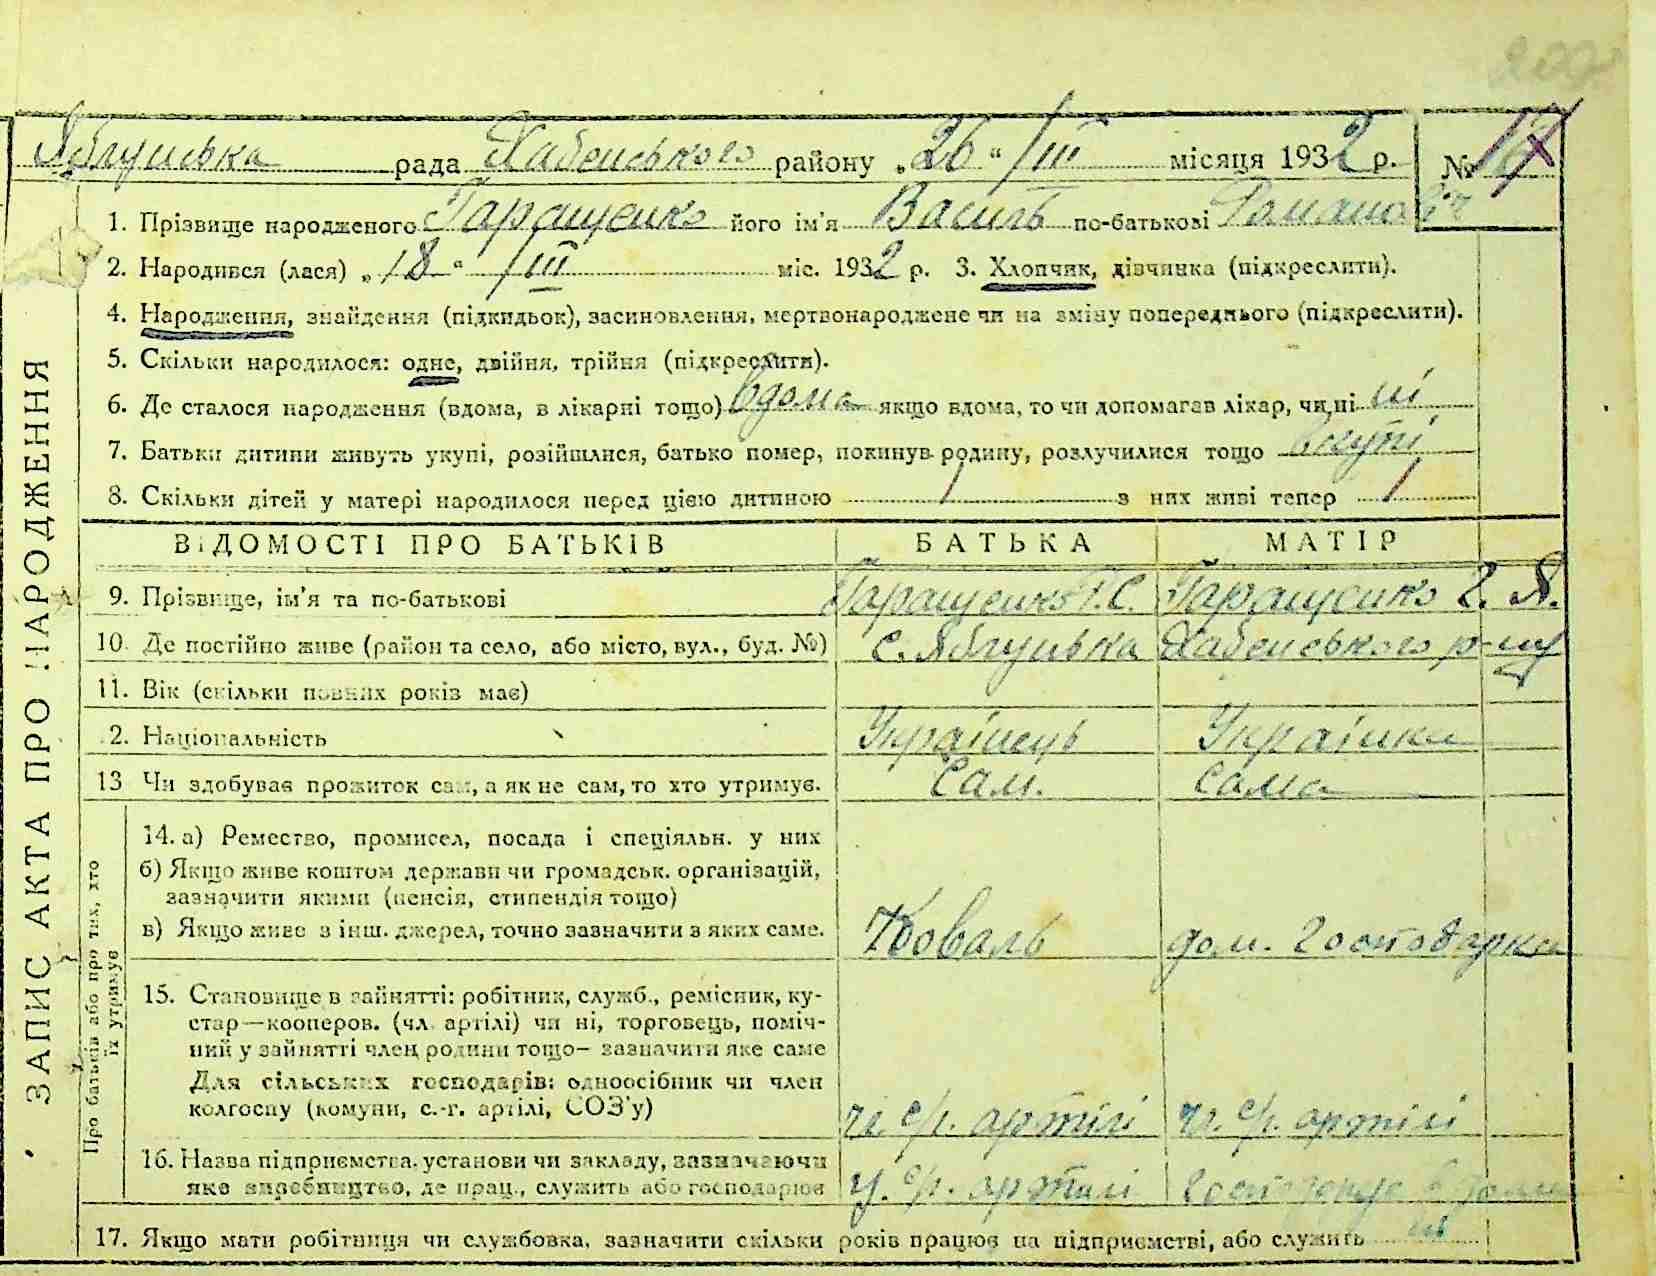 Яблунська рада Хабенського району „26“ /III місяця 1932 р. № 17
1. Прізвище народженого Гаращенко його ім'я Василь по-батькові Романович
2. Народився (лася) „18“ /III міс. 1932 р. 3. Хлопчик, дівчинка (підкреслити).
4. Народження, знайдення (підкидьок), засиновлення, мертвонароджене чи на зміну попереднього (підкреслити).
5. Скільки народилося: одне, двійня, трійня (підкреслити).
6. Де сталося народження (вдома, в лікарні тощо) вдома якщо вдома, то чи допомагав лікар, чи ні ні
7. Батьки дитини живуть укупі, розійшлися, батько помер, покинув родину, розлучилися тощо вкупі
8. Скільки дітей у матері народилося перед цією дитиною 1 з них живі тепер 1
ЗАПИС АКТА ПРО НАРОДЖЕННЯ
ВІДОМОСТІ ПРО БАТЬКІВ БАТЬКА МАТІР
9. Прізвище, ім'я та по-батькові Гаращенко Р. С. Гаращенко Г. Я.
10. Де постійно живе (район та село, або місто, вул., буд. №) с. Хабенського р-ну
11. Вік (скільки повних років має)
2. Національність Українець Українка
13 Чи здобуває прожиток сам, а як не сам, то хто утримує. Сам. сама
Про батьків або про тих, хто
їх утримує
14. а) Ремество, промисел, посада і спеціяльн. у них
б) Якщо живе коштом держави чи громадськ. організацій,
зазначити якими (пенсія, стипендія тощо)
в) Якщо живе з інш. джерел, точно зазначити з яких саме. Коваль дом. господарка
15. Становище в зайнятті: робітник, служб., ремісник, ку-
стар—кооперов. (чл. артілі) чи ні, торговець, поміч-
ний у зайнятті член родини тощо— зазначити яке саме
Для сільських господарів: одноосібник чи член
колгоспу (комуни, с.-г. артілі, СОЗ'у) чл. с/г. артілі чл. с/г. артілі
16. Назва підприємства, установи чи закладу, зазначаючи
яке виробництво, де прац., служить або господарює у. с/г. артілі господарює вдома
17. Якщо мати робітниця чи службовка, зазначити скільки років працює на підприємстві, або служить ні